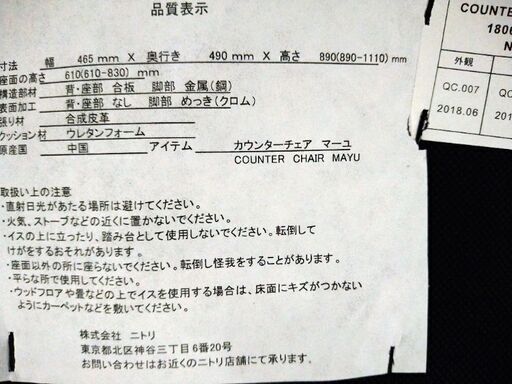 品質表示
寸法 幅 465 mm X 奥行き 490 mm X 高さ 890(890-1110) mm
座面の高さ 610(610-830) mm
構造部材 背・座部 合板 脚部 金属(鋼)
表面加工 背・座部 なし 脚部 めっき(クロム)
張り材 合成皮革
クッション材 ウレタンフォーム
原産国 中国 アイテム カウンターチェア マーユ
COUNTER CHAIR MAYU
取扱い上の注意
・直射日光があたる場所は避けてください。
・火気、ストーブなどの近くに置かないでください。
・イスの上に立ったり、踏み台として使用しないでください。転倒して
けがをするおそれがあります。
・座面以外の所に座らないでください。転倒し怪我をすることがあります。
・平らな所で使用してください。
・ウッドフロアや畳などの上でイスを使用する場合は、床面にキズがつかない
ようにカーペットなどを敷いてください。
株式会社 ニトリ
東京都北区神谷三丁目6番20号
お問い合わせはお近くのニトリ店舗にて承ります。
COUNTE
1806
N
外観
QC.007 QC
2018.06 201